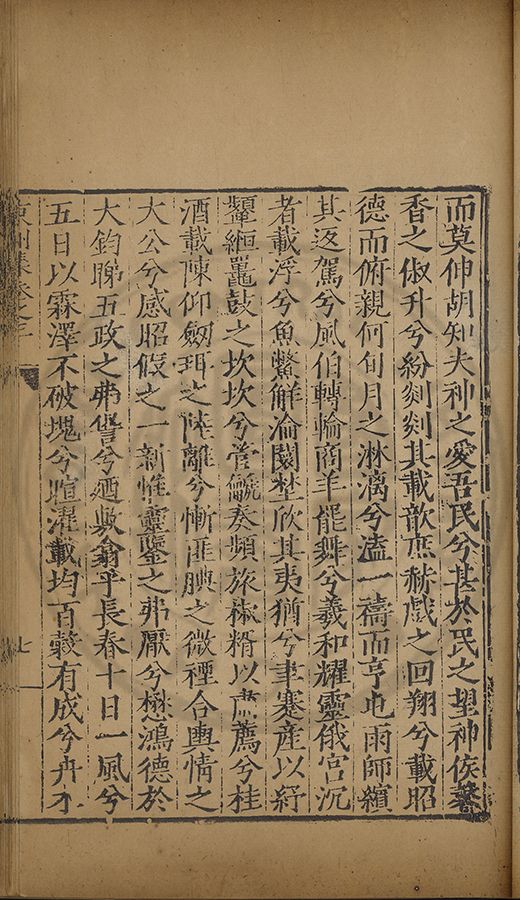 而莫伸胡知夫神之愛吾民兮甚於民之望神俟馨
香之俶升兮紛剡剡其載歆庶赫戲之回翔兮載昭
德而俯親何旬月之淋漓兮溘一禱而亨屯雨師纘
其返駕兮風伯轉輪商羊罷舞兮羲和耀靈俄宮沉
者載浮兮魚鱉鮮淪閡塋欣其夷猶兮聿蹇產以紓
顰緪鼉鼓之坎坎兮管龡奏頻旅椒糈以羞薦兮桂
酒載陳仰劒珥之陸離兮慚匪腆之微禋合輿情之
大公兮感昭假之一新惟靈鑒之弗厭兮懋鴻德於
大鈞睇五政之弗愆兮廼敷翕乎長春十日一風兮
五日以霖澤不破塊兮暄濯載均百穀有成兮卉木
七